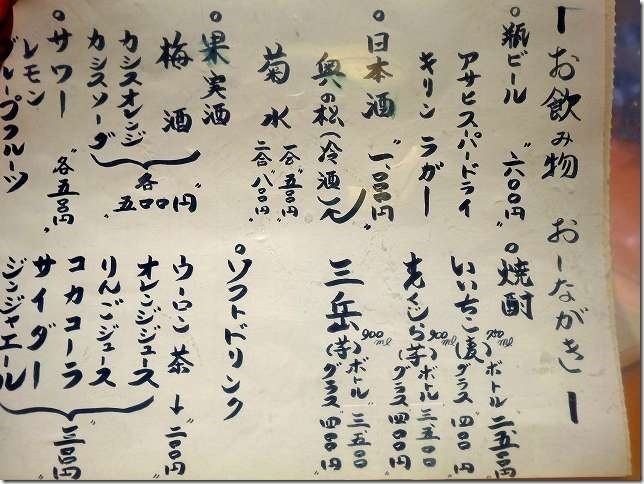 ーお飲み物 おしながきー
○瓶ビール 〃六〇〇円〃
アサヒスーパードライ
キリンラガー
○日本酒
奥の松(冷酒) 〃一、〇〇〇円〃
菊水 一合〃五〇〇円〃
二合〃八〇〇円〃
○果実酒
梅酒
カシスオレンジ
カシスソーダ
各五〇〇円〃
○サワー 〃各五〇〇円〃
レモン
グレープフルーツ
○焼酎
いいちこ(麦) ボトル 二、五〇〇
グラス 〃四〇〇円〃
(芋) 900ml ボトル 三、五〇〇
グラス 〃四〇〇円〃
三岳(芋) 900ml ボトル 三、五〇〇
グラス 〃四〇〇円〃
○ソフトドリンク
ウーロン茶→〃二〇〇円〃
オレンジジュース
りんごジュース
コカコーラ
サイダー
ジンジャエール
〃三〇〇円〃